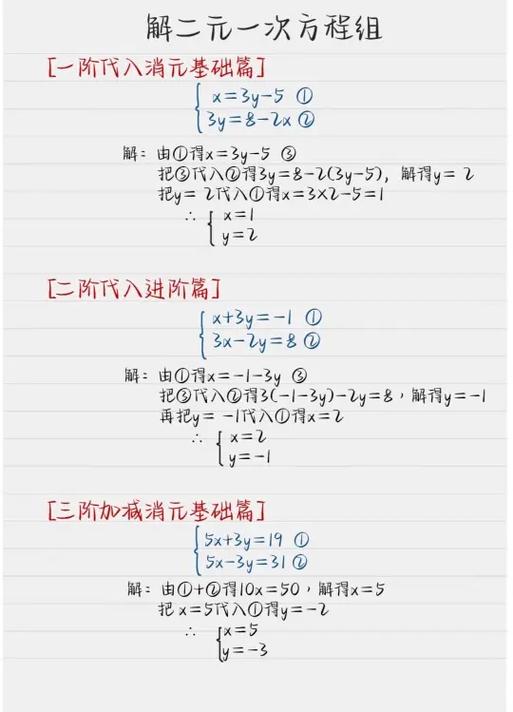 解二元一次方程组
[一阶代入消元基础篇]
x=3y-5 ①
3y=8-2x ②
解：由①得x=3y-5 ③
把③代入②得3y=8-2(3y-5)，解得y=2
把y=2代入①得x=3×2-5=1
∴ { x=1
y=2
[二阶代入进阶篇]
x+3y=-1 ①
3x-2y=8 ②
解：由①得x=-1-3y ③
把③代入②得3(-1-3y)-2y=8，解得y=-1
再把y=-1代入①得x=2
∴ { x=2
y=-1
[三阶加减消元基础篇]
5x+3y=19 ①
5x-3y=31 ②
解：由①+②得10x=50，解得x=5
把x=5代入①得y=-2
∴ { x=5
y=-3